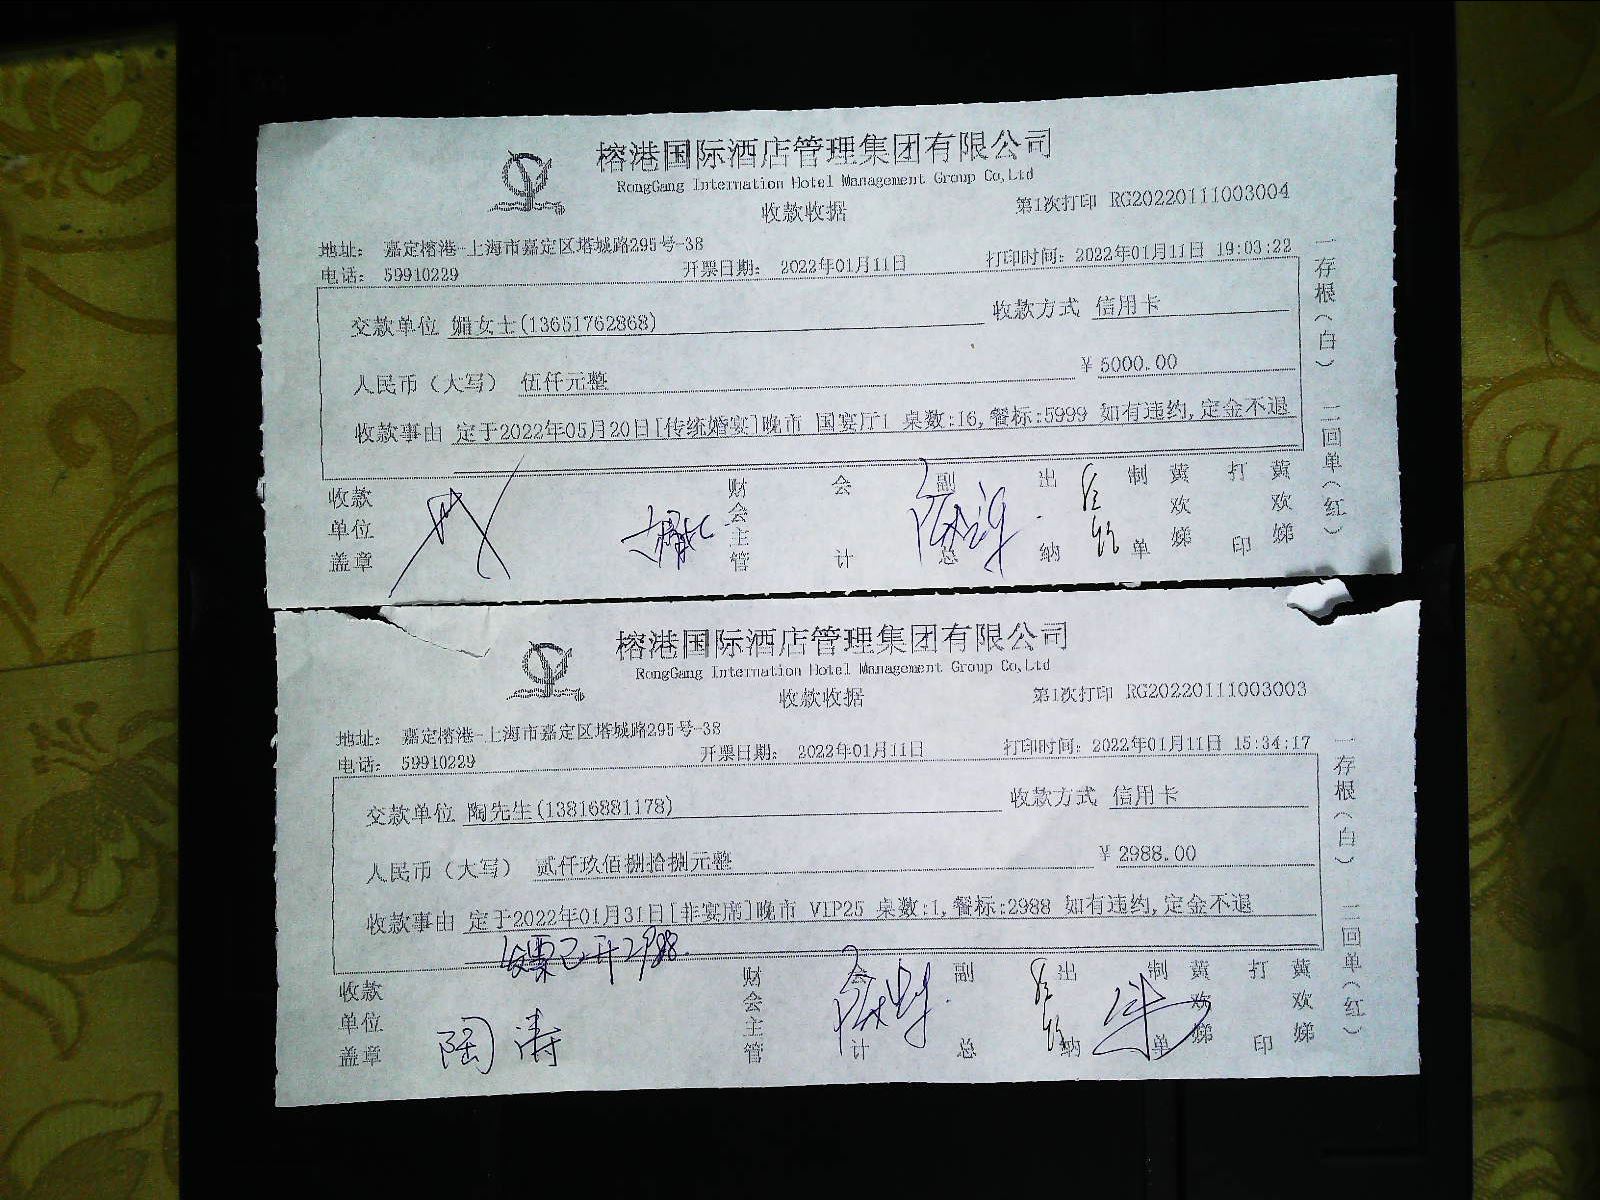 榕港国际酒店管理集团有限公司
RongGang Internation Hotel Management Group Co,Ltd
收款收据
第1次打印 RG20220111003004
地址: 嘉定榕港-上海市嘉定区塔城路295号-38
电话: 59910229
开票日期: 2022年01月11日
打印时间: 2022年01月11日 19:03:22
交款单位 媚女士(13651762868)
收款方式 信用卡
人民币(大写) 伍仟元整
¥ 5000.00
收款事由 定于2022年05月20日[传统婚宴]晚市 国宴厅1 桌数:16,餐标:5999 如有违约,定金不退
收款单位盖章
财会主管
会计
副总
出纳
制单 黄欢娣
打印 黄欢娣
一存根(白) 二回单(红)
榕港国际酒店管理集团有限公司
RongGang Internation Hotel Management Group Co,Ltd
收款收据
第1次打印 RG20220111003003
地址: 嘉定榕港-上海市嘉定区塔城路295号-38
电话: 59910229
开票日期: 2022年01月11日
打印时间: 2022年01月11日 15:34:17
交款单位 陶先生(13816881178)
收款方式 信用卡
人民币(大写) 贰仟玖佰捌拾捌元整
¥ 2988.00
收款事由 定于2022年01月31日[非宴席]晚市 VIP25 桌数:1,餐标:2988 如有违约,定金不退
发票已开2988.
收款单位盖章
陶涛
财会主管
会计
副总
出纳
制单 黄欢娣
打印 黄欢娣
一存根(白) 二回单(红)